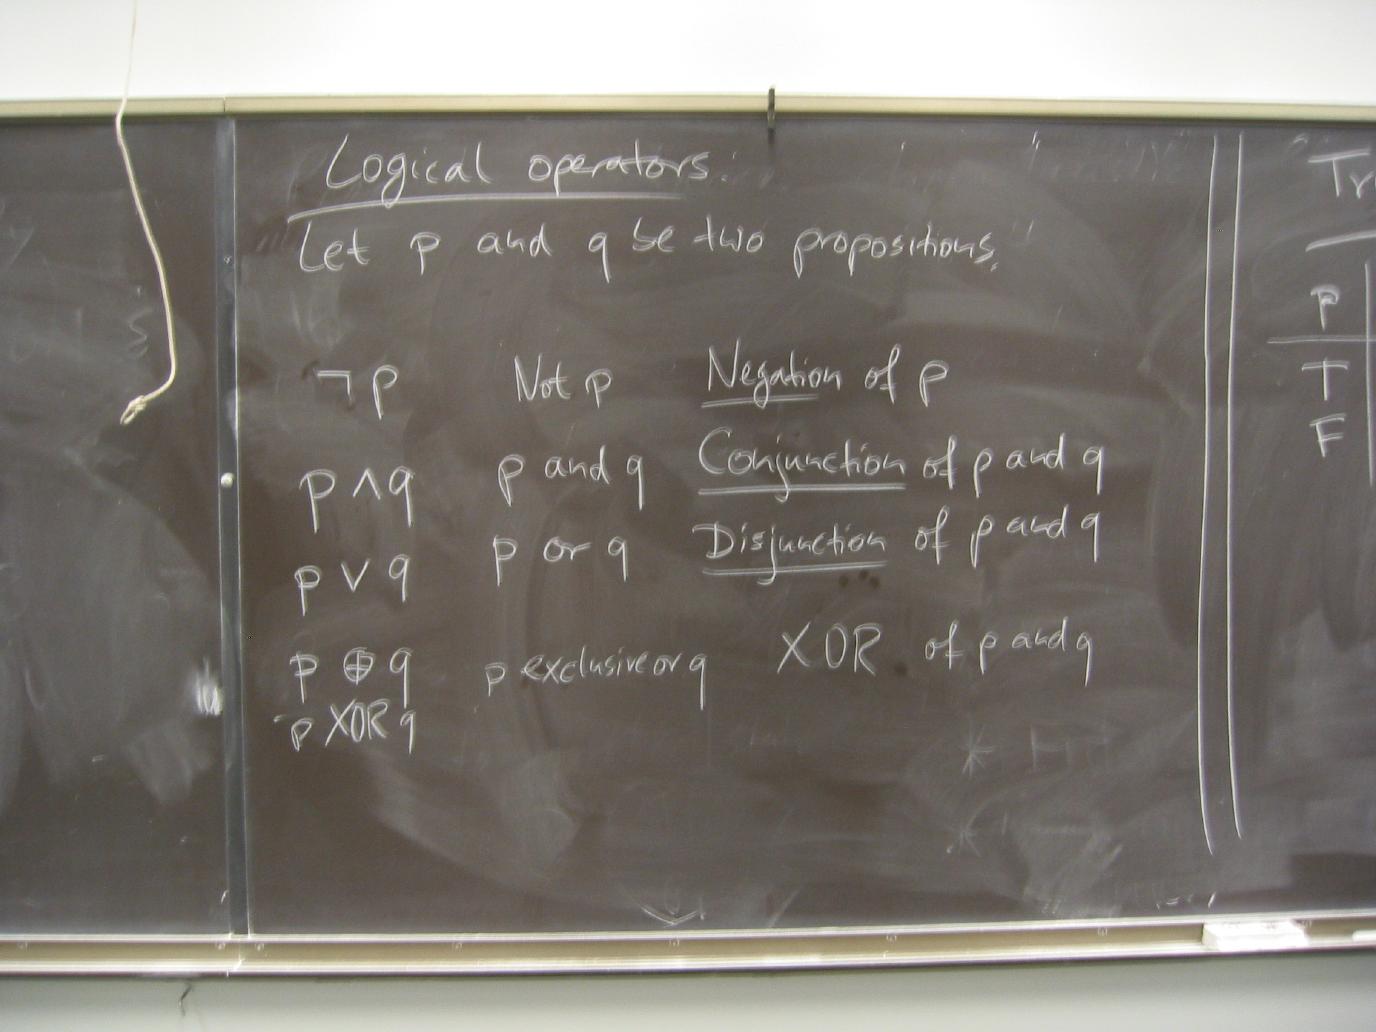 Logical operators:
Let p and q be two propositions.
¬p Not p Negation of p
p ∧ q p and q Conjunction of p and q
p ∨ q p or q Disjunction of p and q
p ⊕ q p exclusive or q XOR of p and q
p XOR q
P
T
F